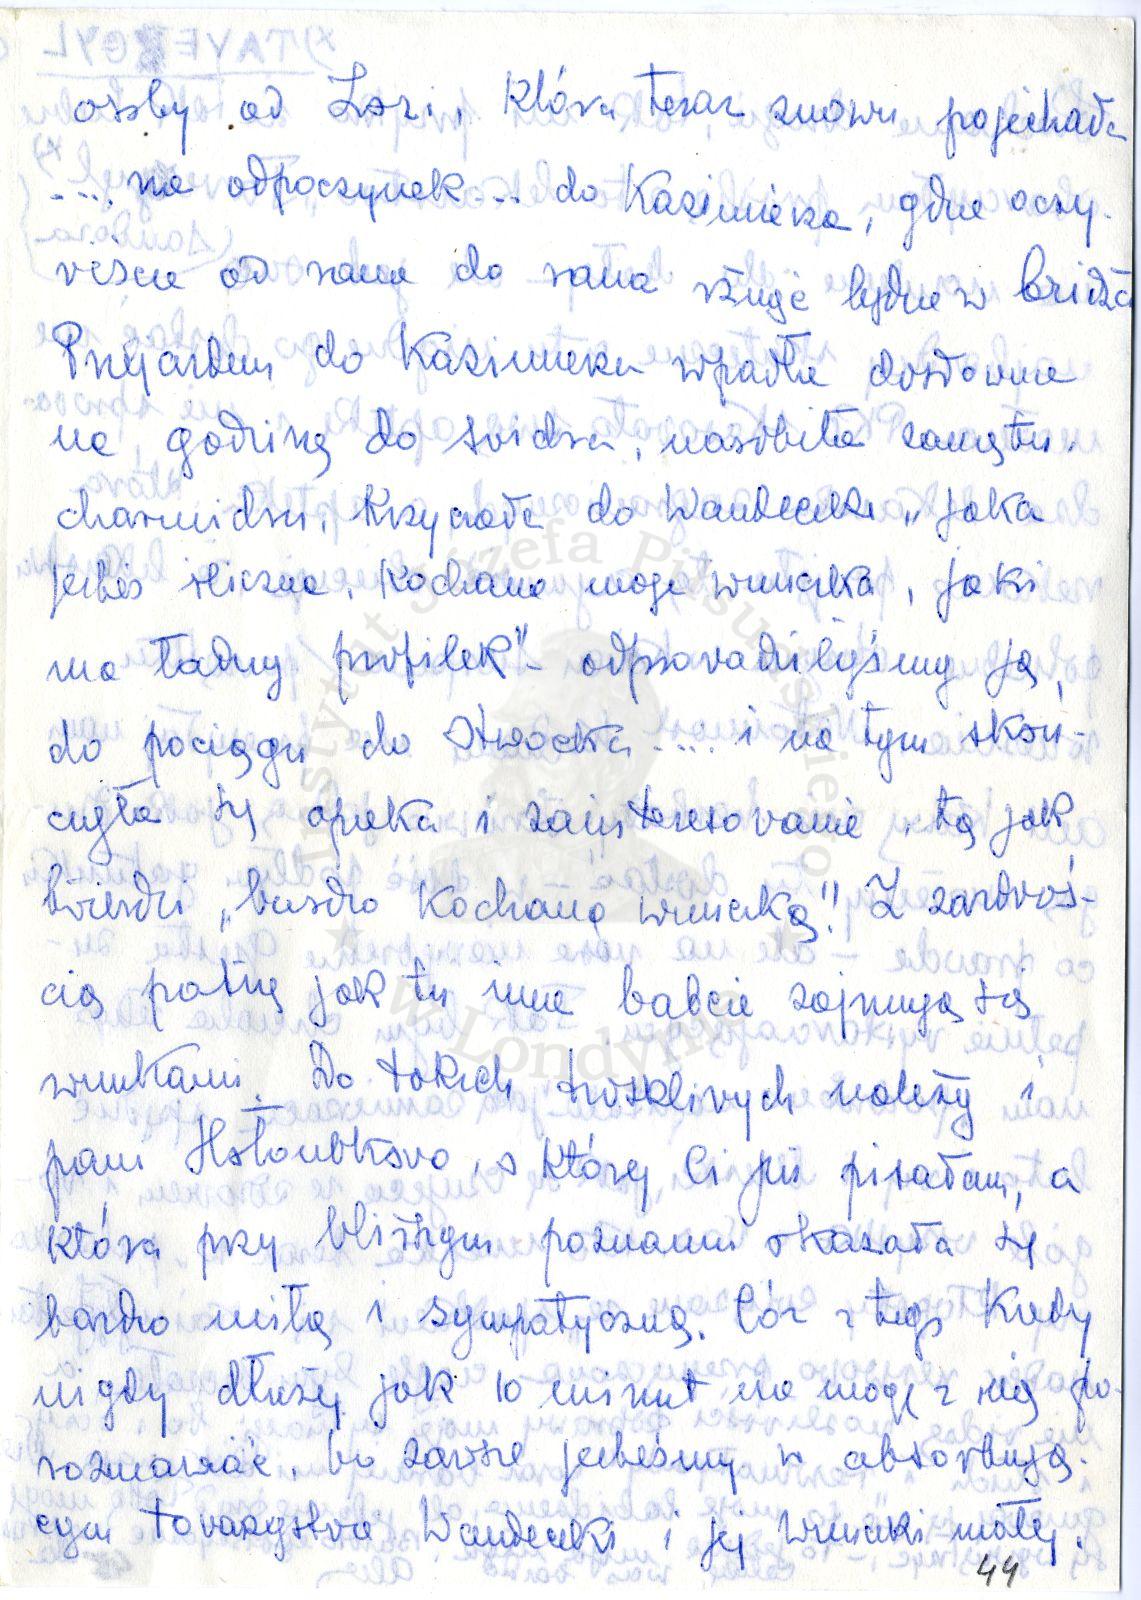 osoby od Lozi, która teraz znowu pojechała
.... na odpoczynek ... do Kazimierza, gdzie oczy-
wiście od rana do rana rżnąć będzie w bridża
Przejazdem do Kazimierza wpadła dosłownie
na godzinę do Świdra, narobiła zamętu,
harmidru, krzyczała do Wandeczki „jaka
jesteś śliczna, kochana moja wnuczka, jaki
ma ładny profilek" - odprowadziłyśmy ją
do pociągu do Otwocka .... i na tym skoń-
czyła się opieka i zainteresowanie tą jak
twierdzi „bardzo kochaną wnuczką"! Z zazdroś-
cią patrzę jak tu inne babcie zajmują się
wnukami. Do takich troskliwych należy i
pani Hołoubkowa, o której Ci już pisałam, a
która przy bliższym poznaniu okazała się
bardzo miłą i sympatyczną. Cóż z tego kiedy
nigdy dłużej jak 10 minut nie mogę z nią po-
rozmawiać, bo zawsze jesteśmy w absorbują-
cym towarzystwie Wandeczki i jej wnuczki małej.
44
Instytut Józefa Piłsudskiego
w Londynie